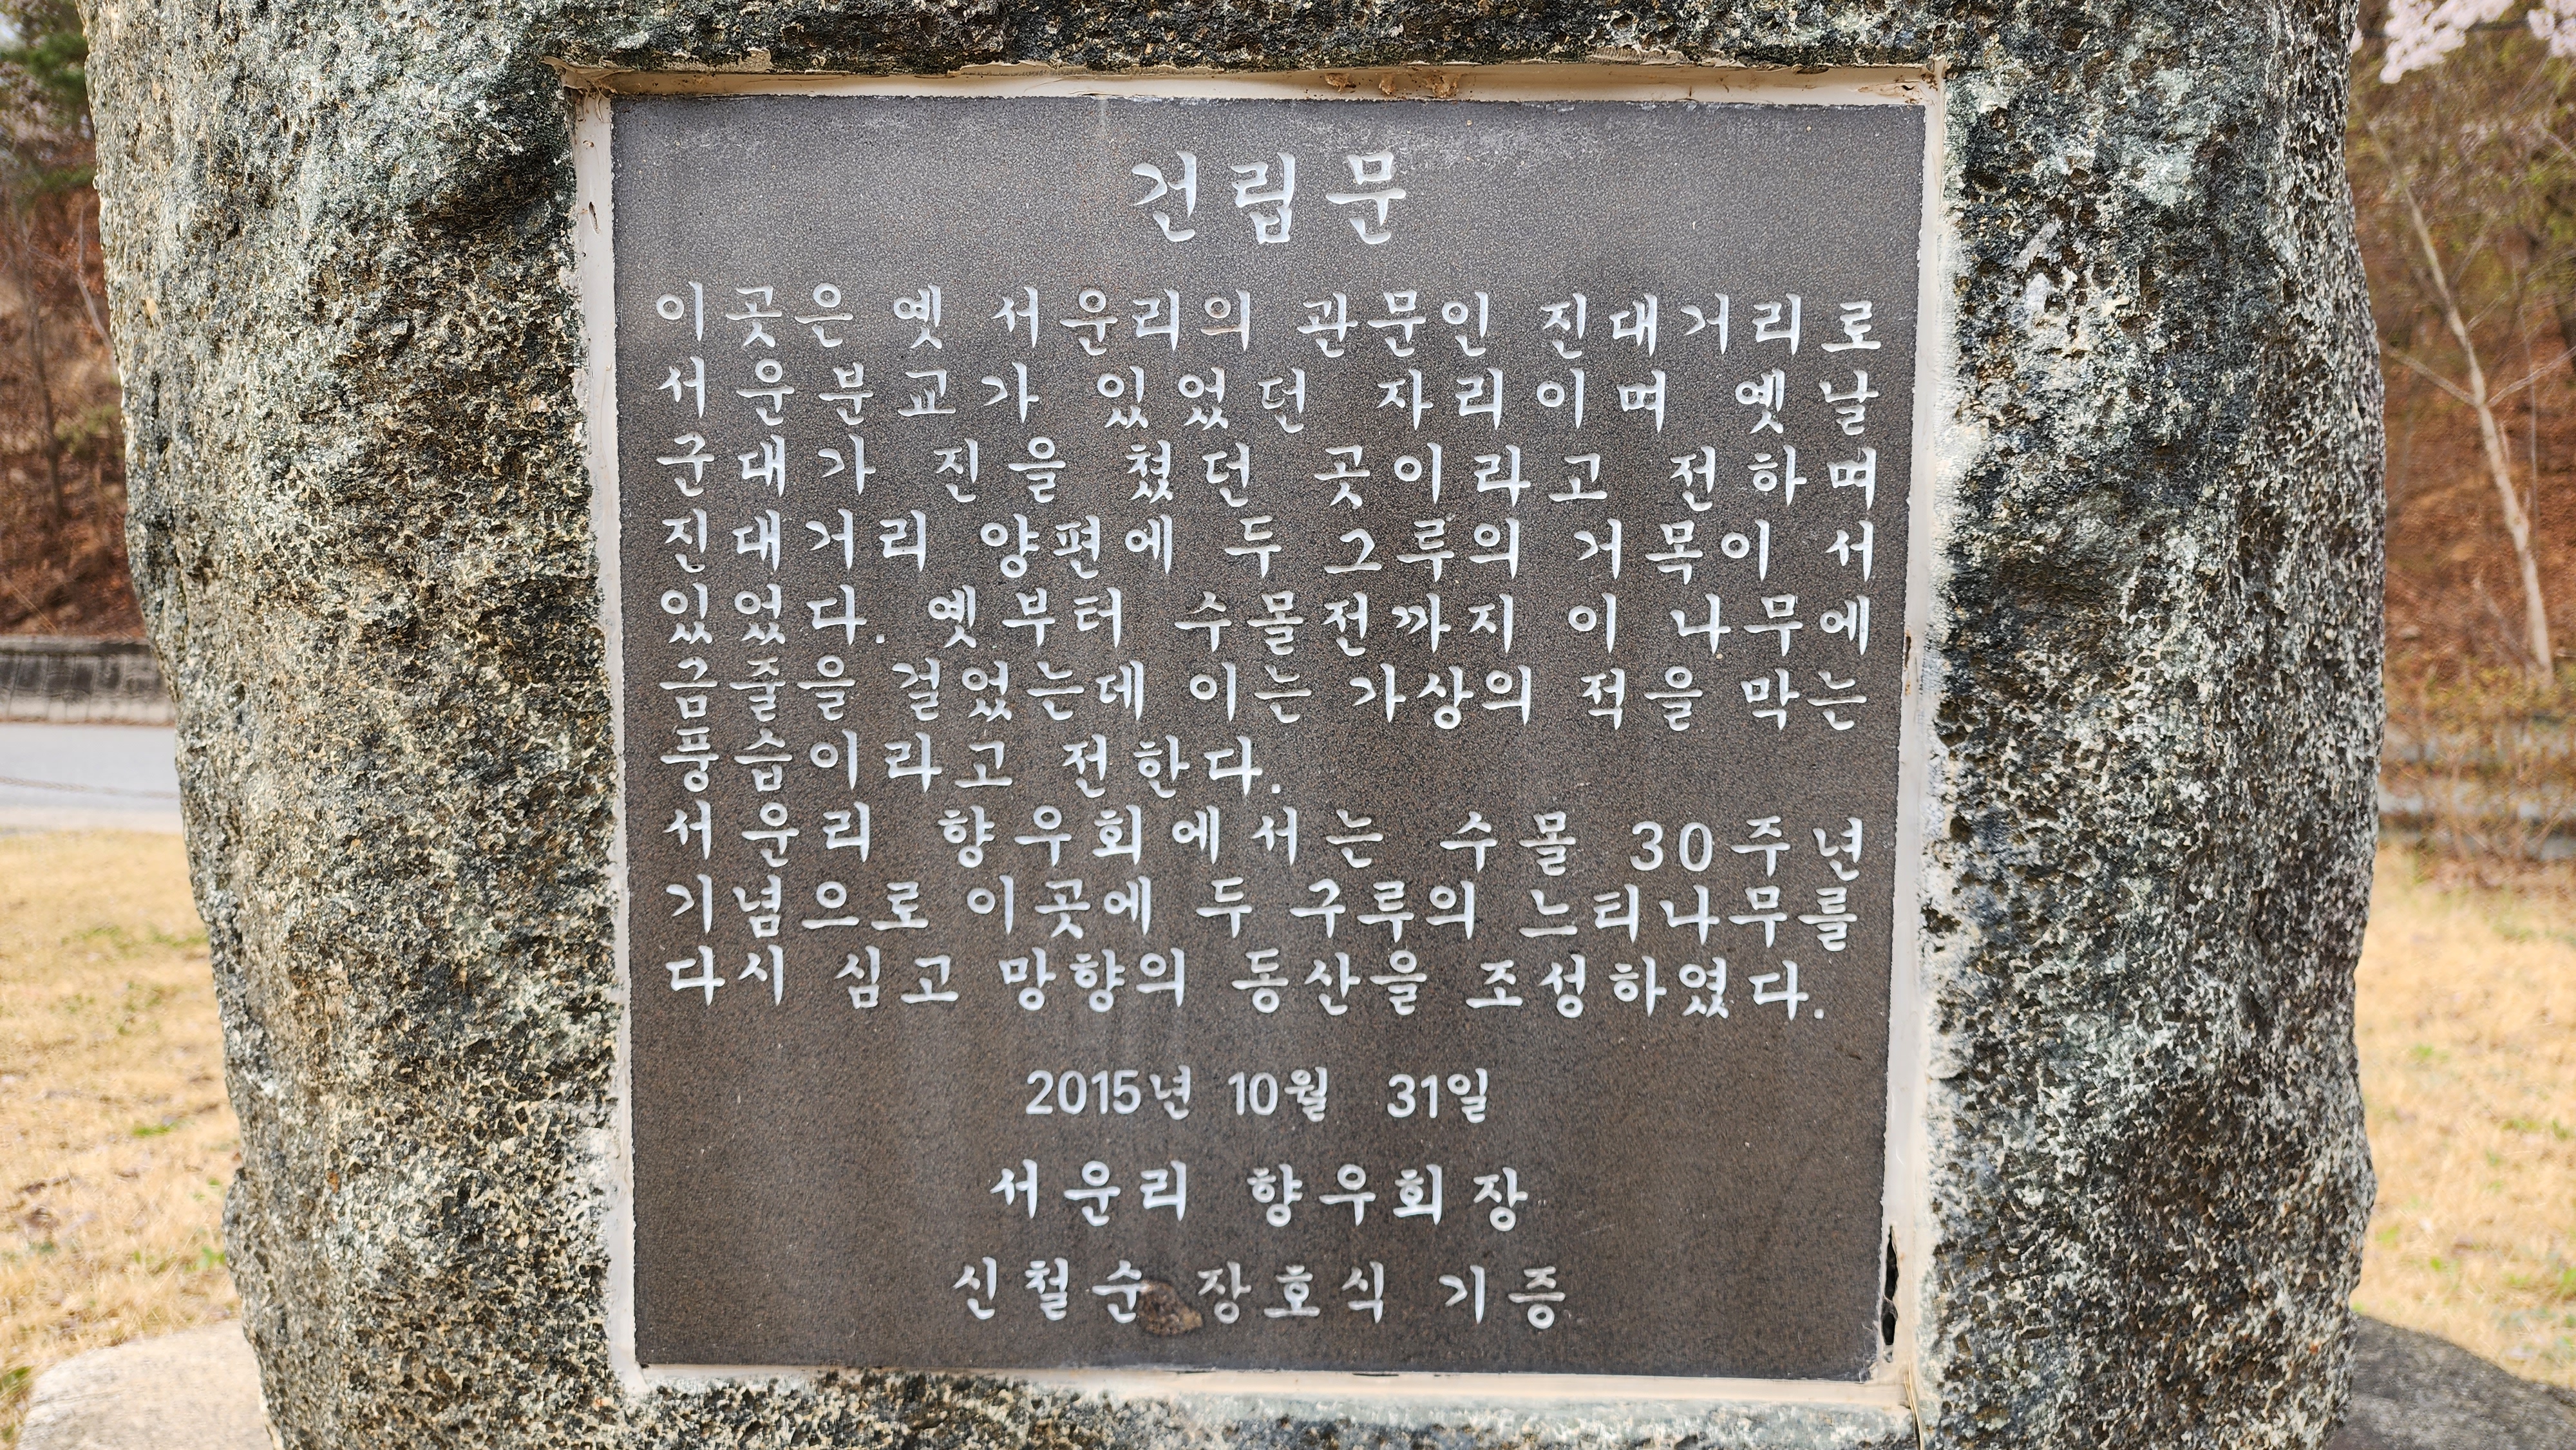 건립문
이곳은 옛 서운리의 관문인 진대거리로
서운분교가 있었던 자리이며 옛날
군대가 진을 쳤던 곳이라고 전하며
진대거리 양편에 두 그루의 거목이 서
있었다. 옛부터 수몰전까지 이 나무에
금줄을 걸었는데 이는 가상의 적을 막는
풍습이라고 전한다.
서운리 향우회에서는 수몰 30주년
기념으로 이곳에 두 구루의 느티나무를
다시 심고 망향의 동산을 조성하였다.
2015년 10월 31일
서운리 향우회장
신철순 장호식 기증